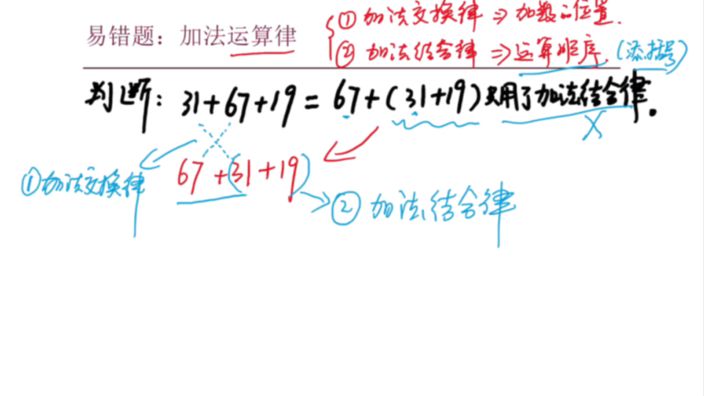 易错题：加法运算律
①加法交换律 ⇒ 加数的位置.
②加法结合律 ⇒ 运算顺序. (添括号)
判断：31+67+19=67+(31+19)只用了加法结合律。
×
67+(31+19)
①加法交换律
②加法结合律